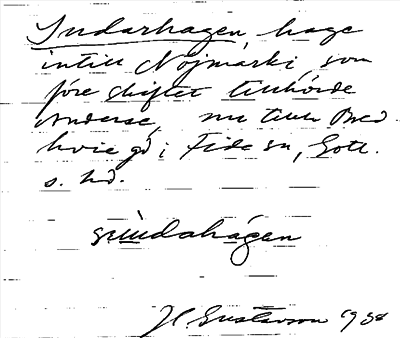 Sudarhagen, hage
intill Nöjmarki, som
före skiftet tillhörde
Anderse, nu till Bred
kvie gd i Fide sn, Gotl.
s. hd.
suudahagen
H. Gustavson 1938